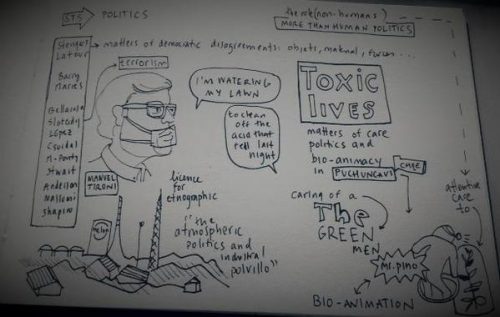 STS
POLITICS
the role (non-humans)
MORE THAN HUMAN POLITICS
Latour
matters of democratic disagreements: objets, material, forces...
terrorism
Barry
Marres
López
Stwart
Anderson
Shapiro
MANUEL
TIRONI
I'M WATERING
MY LAWN
to clean
off the
acid that
fell last
night
licence
for
etnographic
"the
atmospheric
politics and
industrial
polvillo"
Toxic
lives
matters of care
politics and
bio-animacy
in PUCHUNCAVÍ
case
caring of a
The
GREEN
MEN
Mr. pino
BIO-ANIMATION
attentive
case
to